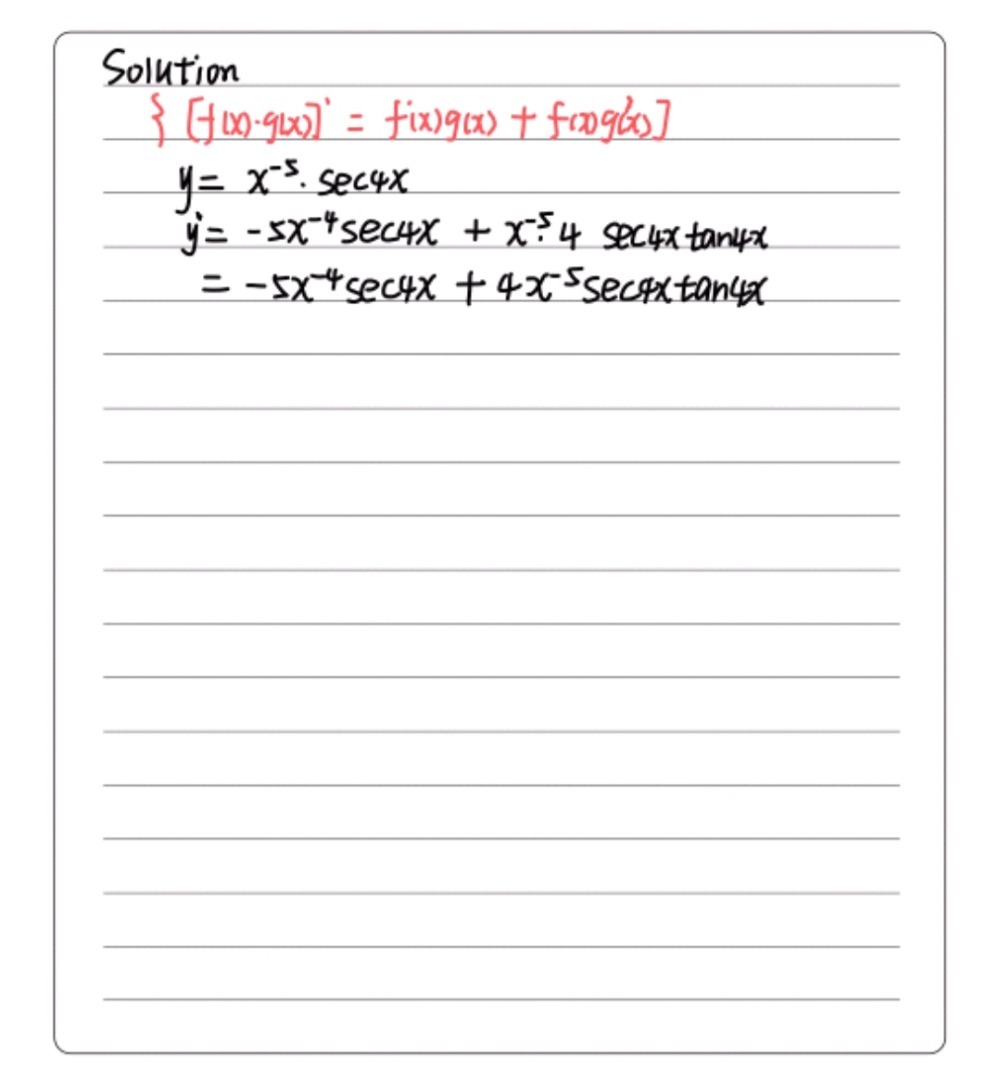 Solution
{ [f(x)·g(x)]' = f'(x)g(x) + f(x)g'(x)]
y = x⁻⁵· sec4x
y' = -5x⁻⁴sec4x + x⁻⁵·4 sec4xtan4x
= -5x⁻⁴sec4x + 4x⁻⁵sec4xtan4x